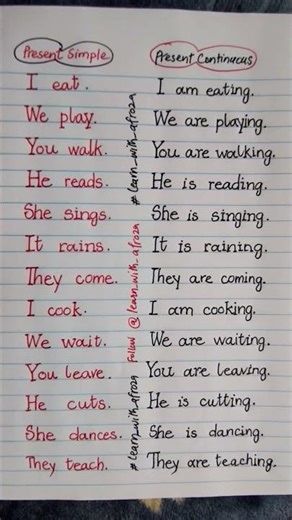 Present Simple Present Continuous
I eat. I am eating.
We play. We are playing.
You walk. You are walking.
He reads. He is reading.
She sings. She is singing.
It rains. It is raining.
They come. They are coming.
I cook. I am cooking.
We wait. We are waiting.
You leave. You are leaving.
He cuts. He is cutting.
She dances. She is dancing.
They teach. They are teaching.
#learn_with_afroza
Follow @learn_with_afroza
#learn_with_afroza